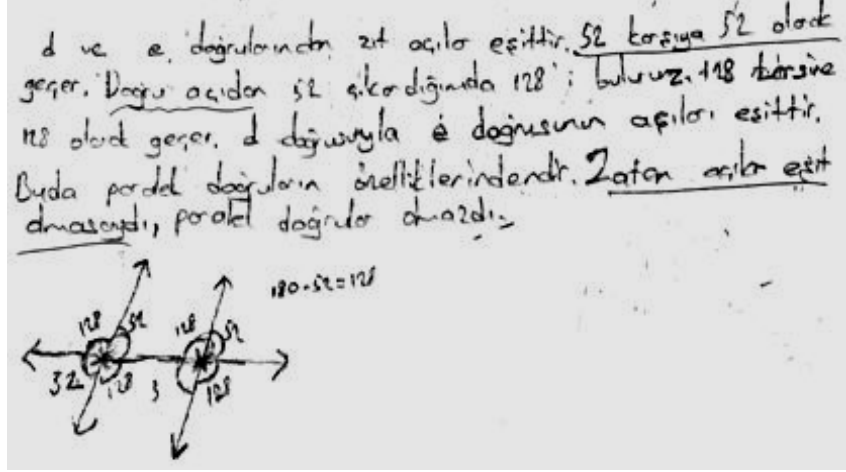 d ve e doğrularından zıt açılar eşittir. 52 karşıya 52 olarak
geçer. Doğru açıdan 52 çıkardığımda 128'i buluruz. 128 karşıya
128 olarak geçer. d doğrusuyla e doğrusunun açıları eşittir.
Buda paralel doğruların özelliklerindendir. Zaten açılar eşit
olmasaydı, paralel doğrular olmazdı.
180-52=128
128 52 128 52
52 128 128